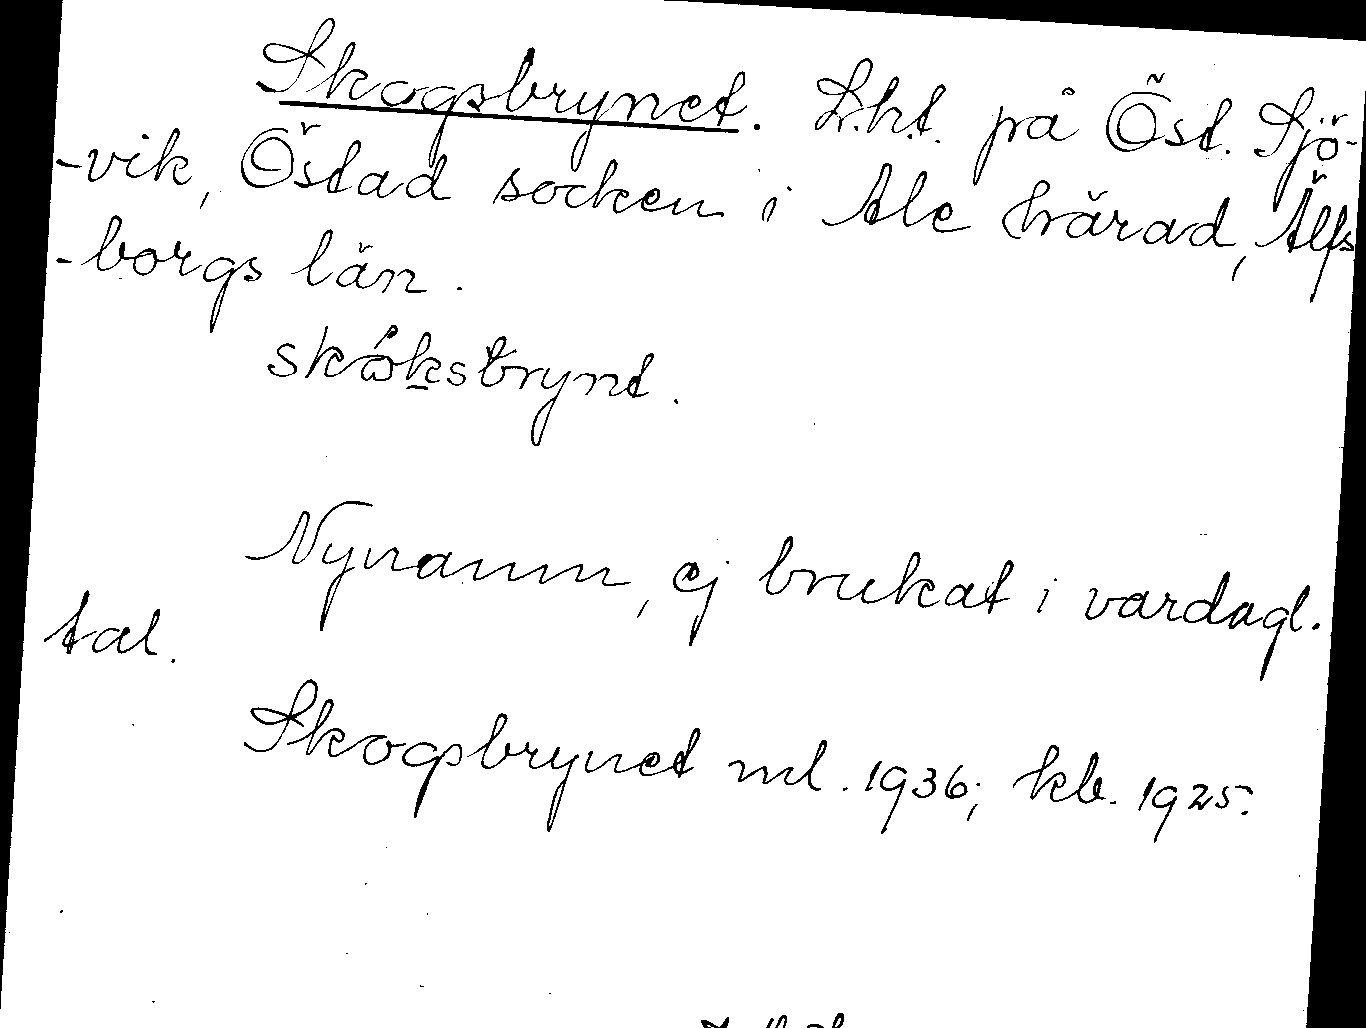 Skogsbrynet. Lht. på Öst. Sjö-
-vik, Östad socken i Ale härad, Älfs
-borgs län.
skǻksbrynt.
Nynamn, ej brukat i vardagl.
tal.
Skogsbrynet ml. 1936; kb. 1925.